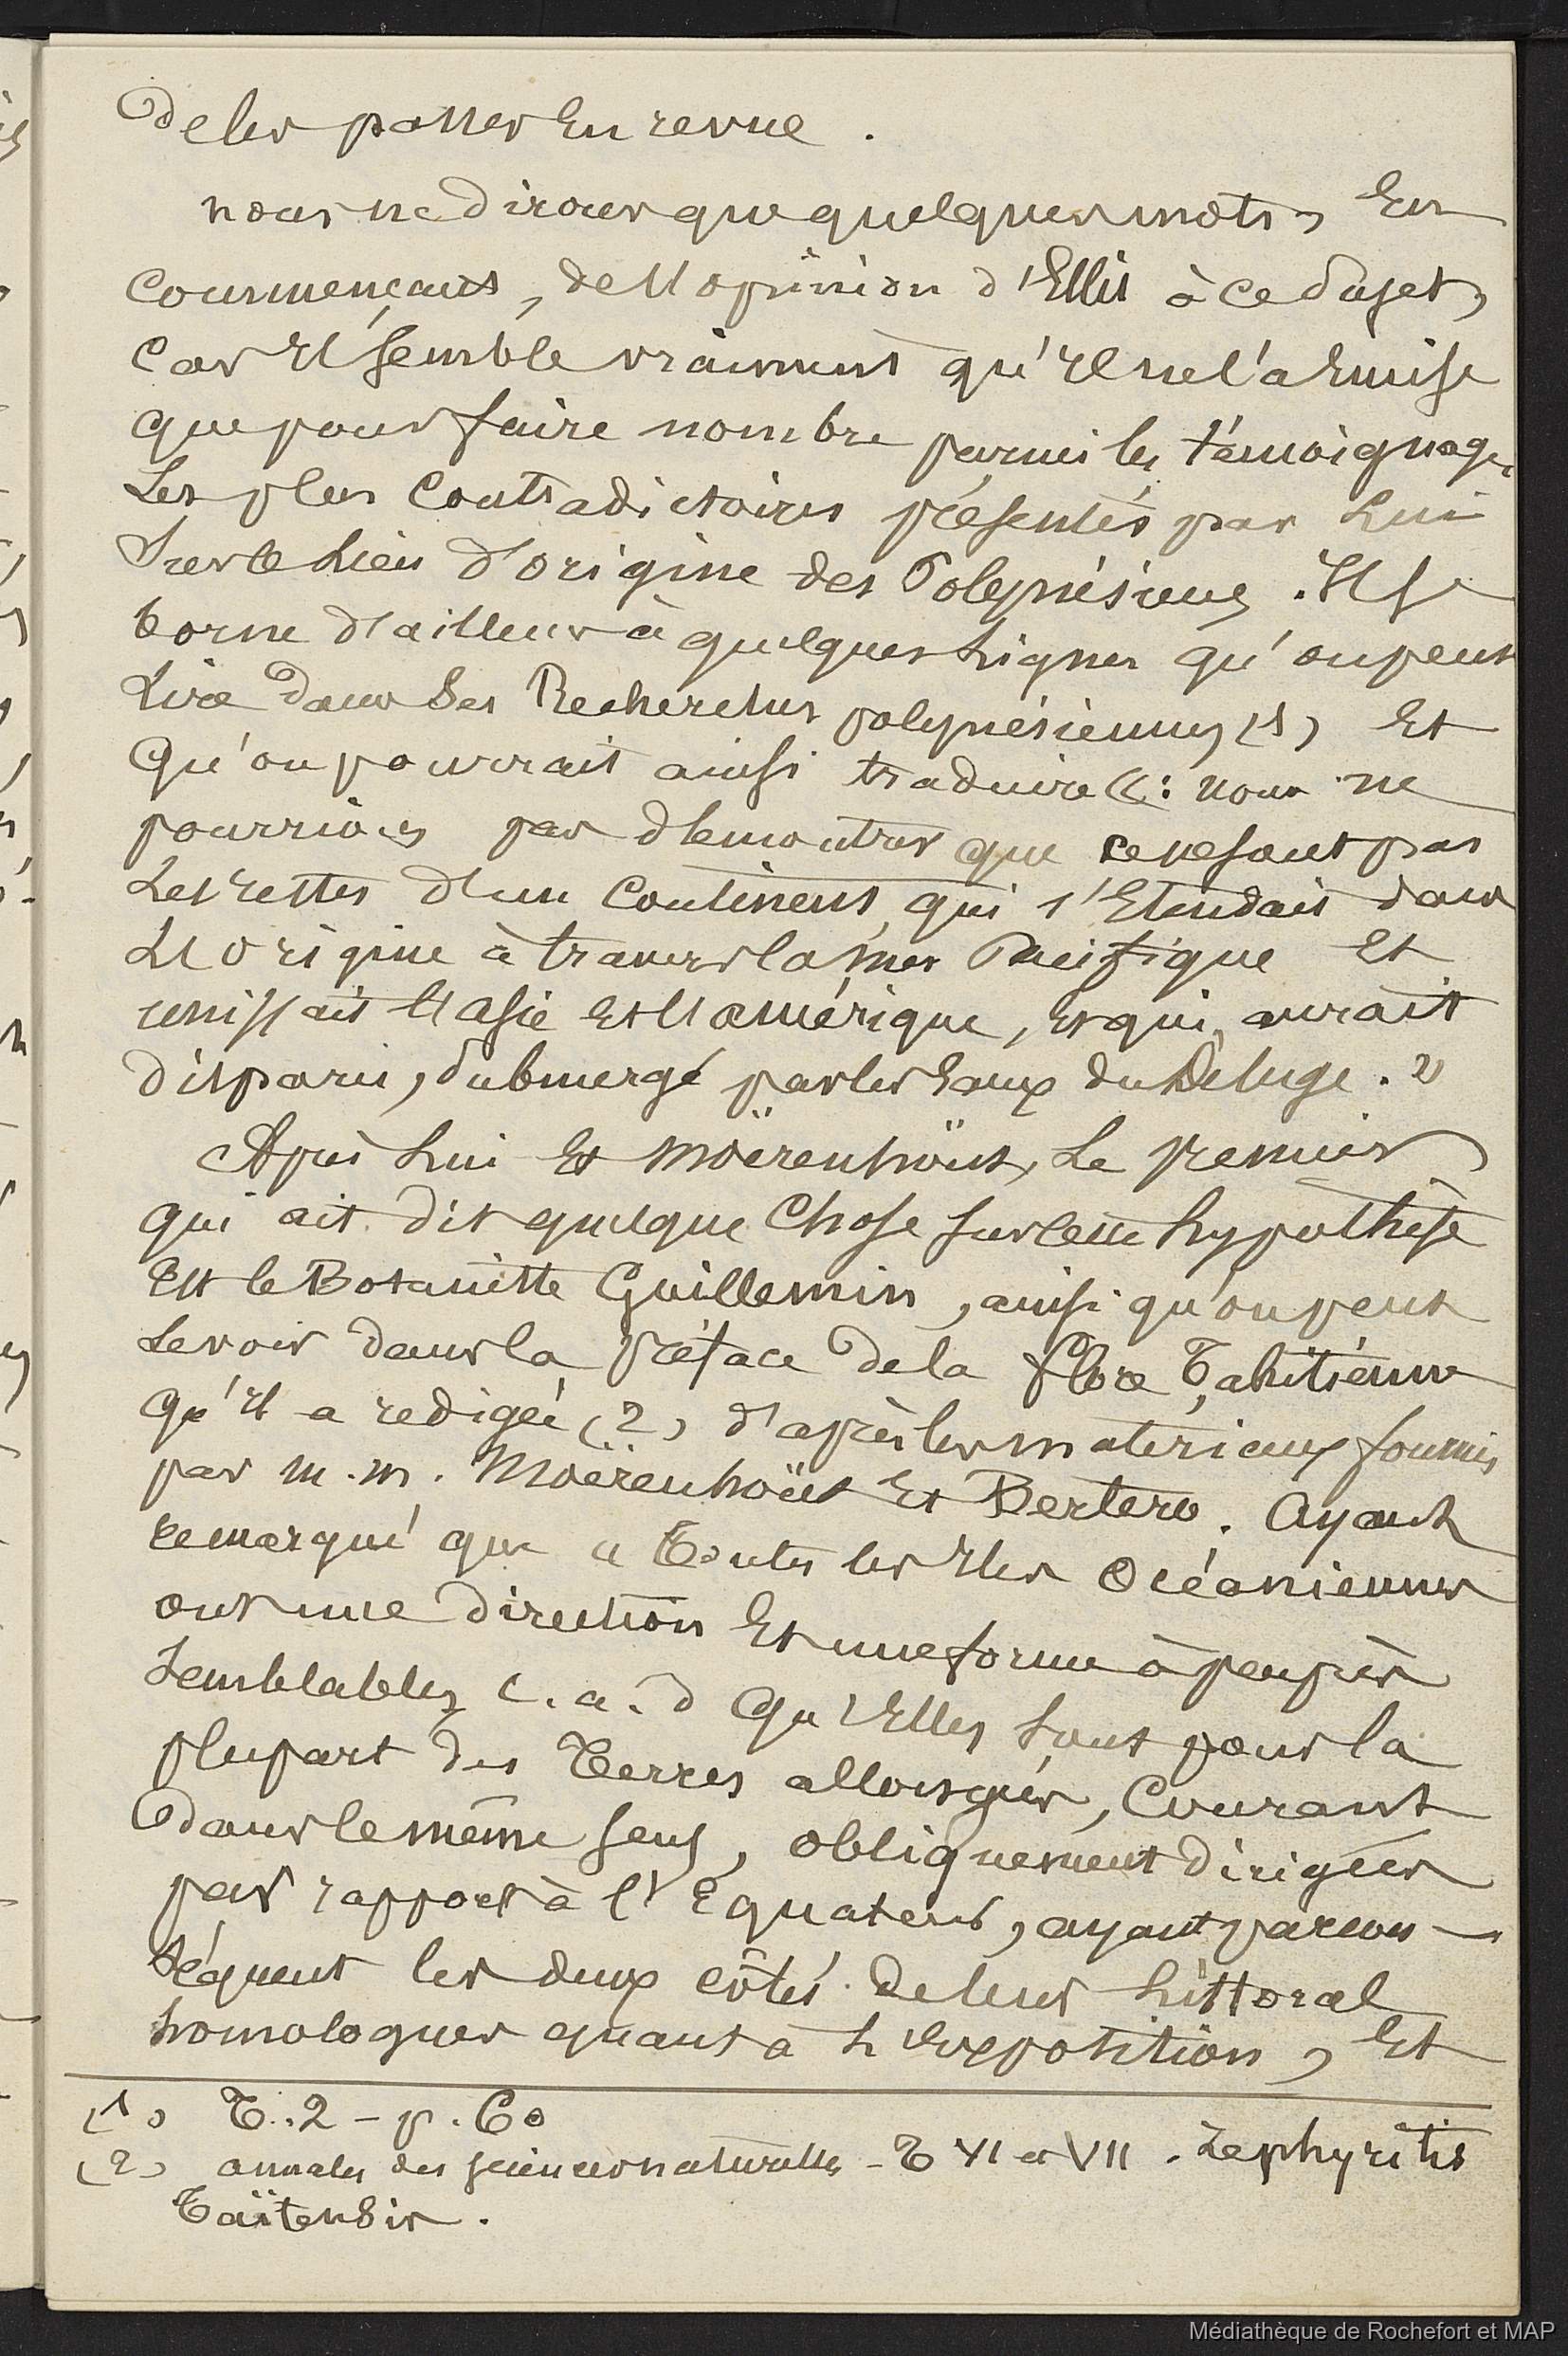 de les passer en revue.
nous ne dirons que quelques mots, en
commençant, de l'opinion d'Ellis à ce sujet,
car il semble vraiment qu'il ne l'a émise
que pour faire nombre parmi les témoignages
les plus contradictoires présentés par lui
sur le lieu d'origine des Polynésiens. Il se
borne d'ailleurs à quelques lignes qu'on peut
lire dans ses Recherches polynésiennes (1) et
qu'on pourrait ainsi traduire « : nous ne
pourrions pas démontrer que ce ne sont pas
les restes d'un continent qui s'étendait dans
l'origine à travers la mer Pacifique et
unissait l'asie et l'amérique, et qui aurait
disparu, submergé par les eaux du Déluge. »
Après lui et Moërenhoüt, le premier
qui ait dit quelque chose sur cette hypothèse
est le Botaniste Guillemin, ainsi qu'on peut
le voir dans la préface de la flore Tahitienne
qu'il a redigée (2) d'après les materiaux fournis
par m.m. Moërenhoüt et Bertero. Ayant
remarqué que « toutes les îles Océaniennes
ont une direction et une forme à peu près
semblables c.a.d qu'elles sont pour la
plupart des terres allongées, courant
dans le même sens, obliquement dirigées
par rapport à l'Equateur, ayant par con-
séquent les deux côtés de leur littoral
homologues quant à l'exposition, et
(1) T. 2 - p. 60
(2) annales des sciences naturelles - T VI et VII. Zephyritis
Taïtensis.